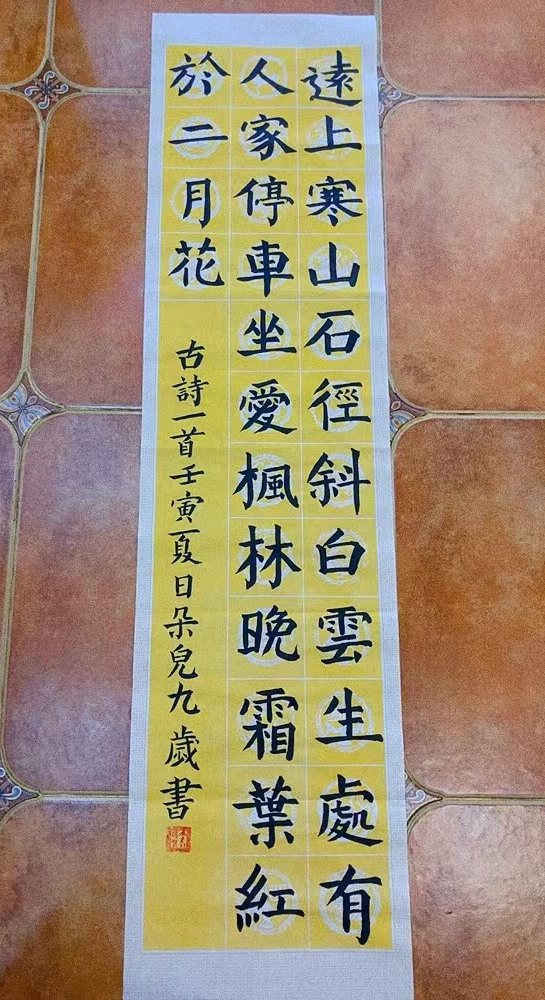 遠上寒山石徑斜白雲生處有
人家停車坐愛楓林晚霜葉紅
於二月花
古詩一首壬寅夏日朵兒九歲書